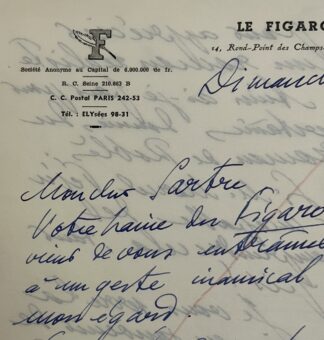 LE FIGARO
14, Rond-Point des Champs-
F
Société Anonyme au Capital de 6.000.000 de fr.
R. C. Seine 210.883 B
C. C. Postal PARIS 242-53
Tél. : ELYsées 98-31
Dimanc
Monsieur Sartre
Votre haine du Figaro
vient de vous entraîner
à un geste inamical
mon égard